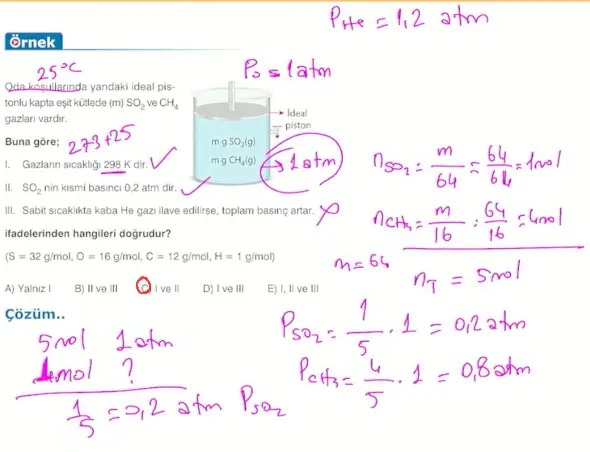 P He = 1,2 atm
Örnek
25°C
P₀ = 1 atm
Oda koşullarında yandaki ideal pis-
tonlu kapta eşit kütlede (m) SO₂ ve CH₄
gazları vardır.
İdeal
piston
m g SO₂(g)
m g CH₄(g)
→ 1 atm
Buna göre;
273+25
I. Gazların sıcaklığı 298 K dir.
II. SO₂ nin kısmi basıncı 0,2 atm dir.
III. Sabit sıcaklıkta kaba He gazı ilave edilirse, toplam basınç artar.
ifadelerinden hangileri doğrudur?
(S = 32 g/mol, O = 16 g/mol, C = 12 g/mol, H = 1 g/mol)
A) Yalnız I B) II ve III C) I ve II D) I ve III E) I, II ve III
nSO₂ = m/64 = 64/64 = 1mol
nCH₄ = m/16 = 64/16 = 4mol
m = 64
nT = 5mol
Çözüm..
5mol 1atm
1mol ?
1/5 = 0,2 atm PSO₂
PSO₂ = 1/5 . 1 = 0,2 atm
PCH₄ = 4/5 . 1 = 0,8 atm